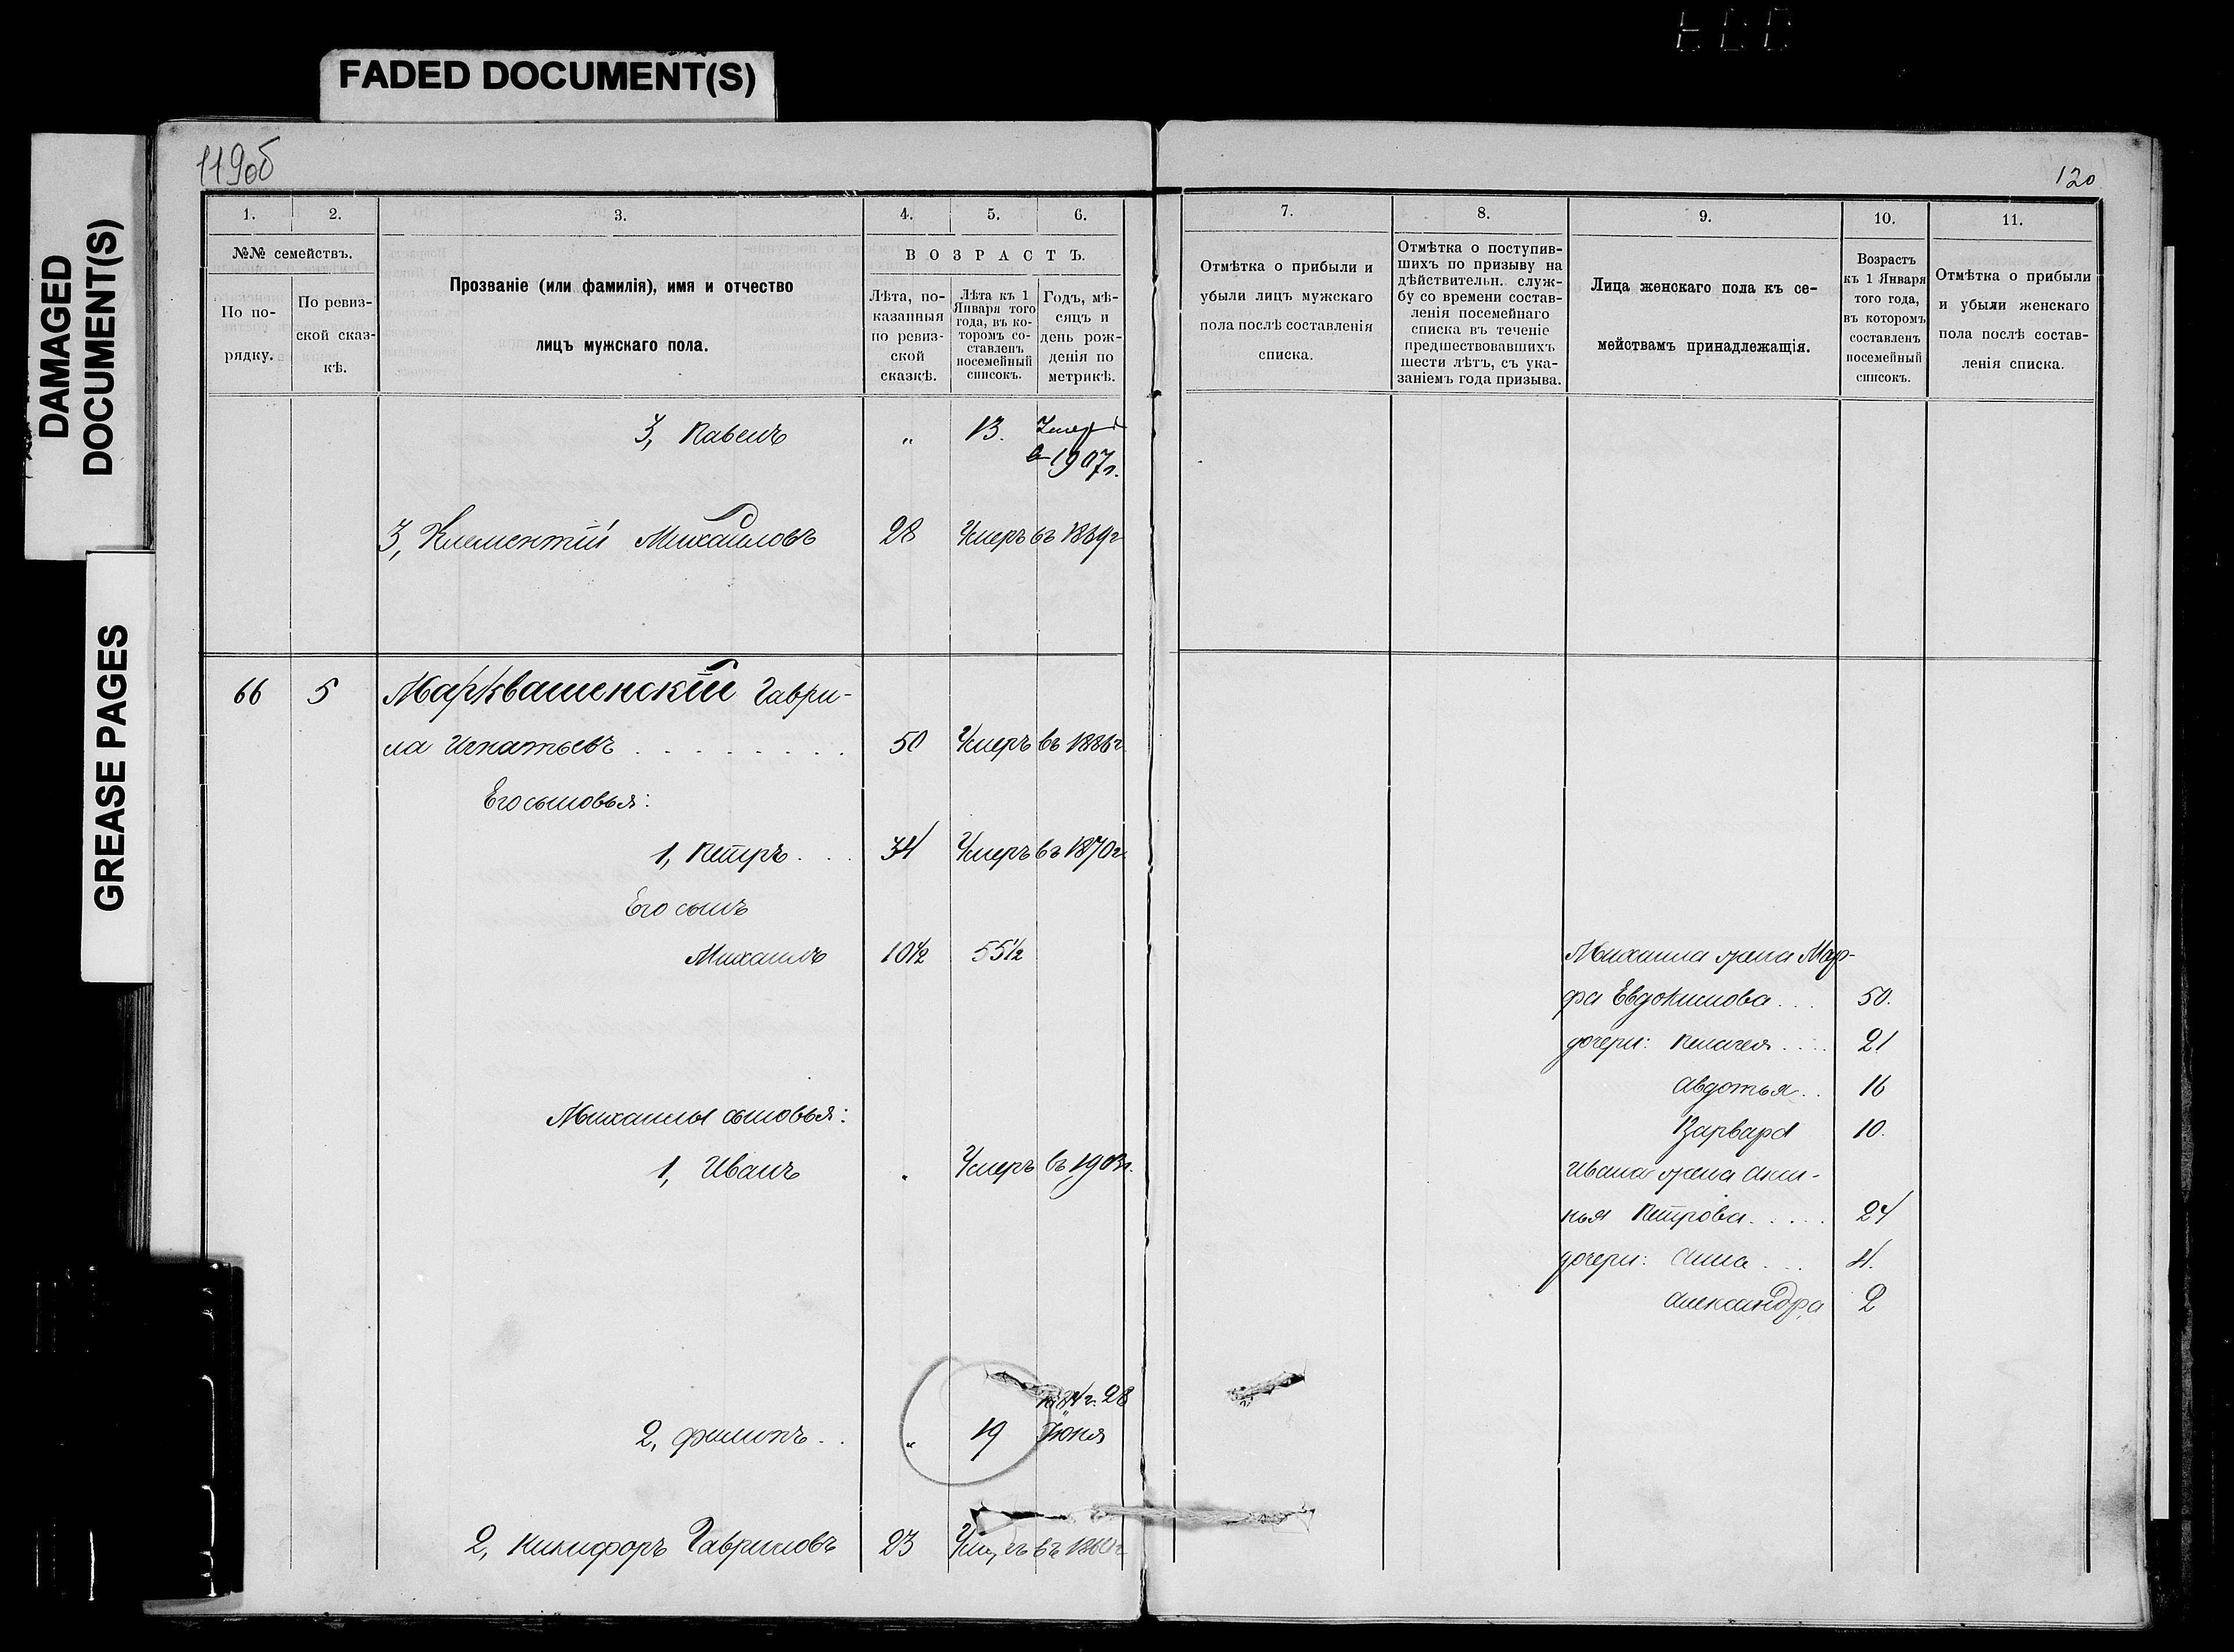 FADED DOCUMENT(S)
DAMAGED
DOCUMENT(S)
GREASE PAGES
119об
1.
2.
3.
4.
5.
6.
№№ семействъ.
По по-
рядку.
По ревиз-
ской сказ-
кѣ.
Прозваніе (или фамилія), имя и отчество
лицъ мужскаго пола.
ВОЗРАСТЪ.
Лѣта, по-
казанныя
по ревиз-
ской
сказкѣ.
Лѣта къ 1
Января того
года, въ ко-
торомъ со-
ставленъ
посемейный
списокъ.
Годъ, мѣ-
сяцъ и
день рож-
денія по
метрикѣ.
3, Павелъ „ 13. Умеръ
в 1907г.
3, Климентій Михайловъ 28 Умеръ въ 1869г
66 5 Марквашенскій Гаври-
ла Игнатьевъ . . . . . . . . 50 Умеръ въ 1886г
Его сыновья:
1, Петръ . . . 34 Умеръ въ 1870г.
Его сынъ
Михаилъ 10½ 55½
Михаилы сыновья:
1, Иванъ „ Умеръ въ 1903г.
1884г. 28
2, Филипъ . . „ 19 Іюня
2, Никифоръ Гавриловъ 23 въ
120
7.
8.
9.
10.
11.
Отмѣтка о прибыли и
убыли лицъ мужскаго
пола послѣ составленія
списка.
Отмѣтка о поступив-
шихъ по призыву на
дѣйствительн. служ-
бу со времени состав-
ленія посемейнаго
списка въ теченіе
предшествовавшихъ
шести лѣтъ, съ ука-
заніемъ года призыва.
Лица женскаго пола къ се-
мействамъ принадлежащія.
Возрастъ
къ 1 Января
того года,
въ которомъ
составленъ
посемейный
списокъ.
Отмѣтка о прибыли
и убыли женскаго
пола послѣ состав-
ленія списка.
Михаила жена Мар-
фа Евдокимова . . . 50.
дочери: Пелагея . . . . 21
Авдотья . . 16
Варвара 10.
Ивана жена Аксин-
нья Петрова . . . . . 24
дочери: Анна . . . 4.
Александра 2